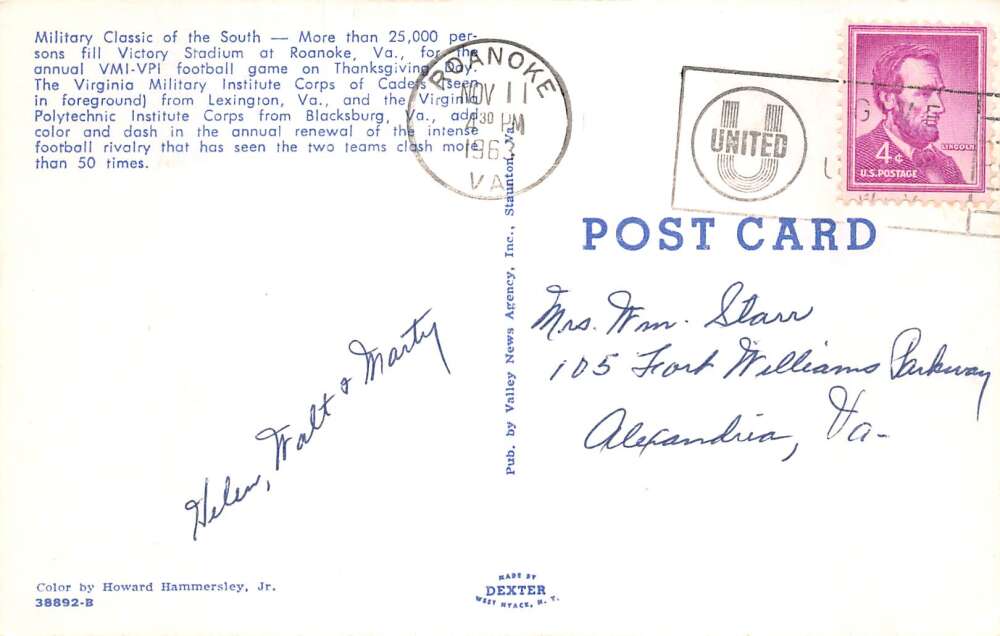 Military Classic of the South — More than 25,000 per-
sons fill Victory Stadium at Roanoke, Va., for the
annual VMI-VPI football game on Thanksgiving Day.
The Virginia Military Institute Corps of Cadets (seen
in foreground) from Lexington, Va., and the Virginia
Polytechnic Institute Corps from Blacksburg, Va., add
color and dash in the annual renewal of the intense
football rivalry that has seen the two teams clash more
than 50 times.
ROANOKE
NOV 11
4 30 PM
1963
VA
UNITED
LINCOLN
4¢
U.S. POSTAGE
POST CARD
Mrs. Wm. Starr
105 Fort Williams Parkway
Alexandria, Va-
Helen, Walt & Marty
Pub. by Valley News Agency, Inc., Staunton, Va.
Color by Howard Hammersley, Jr.
38892-B
MADE BY
DEXTER
WEST NYACK, N. Y.